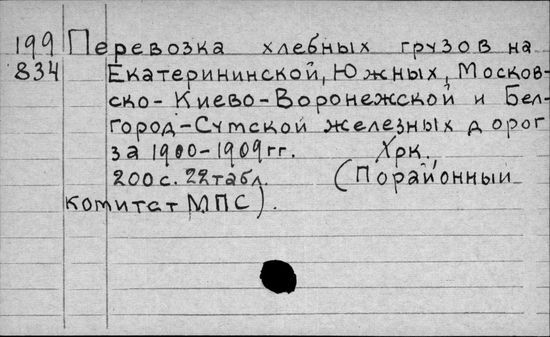 199 Перевозка хлебных грузов на
834 Екатерининской, Южных, Москов-
ско-Киево-Воронежской и Бел-
город-Сумской железных дорог
за 1900-1909 гг. Хрк,
200 с. 22 табл. (Порайонный
комитет МПС).